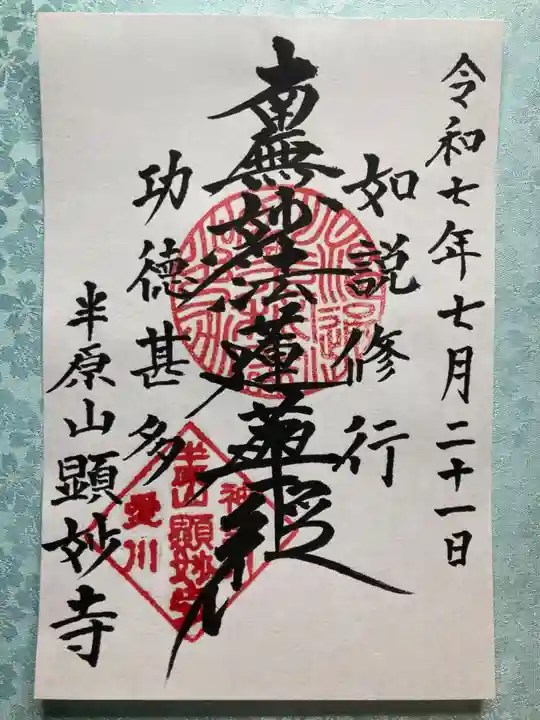 令和七年七月二十一日
如説修行
南無妙法蓮華経
功徳甚多
半原山顕妙寺
神奈川
半原山顕妙寺
愛川